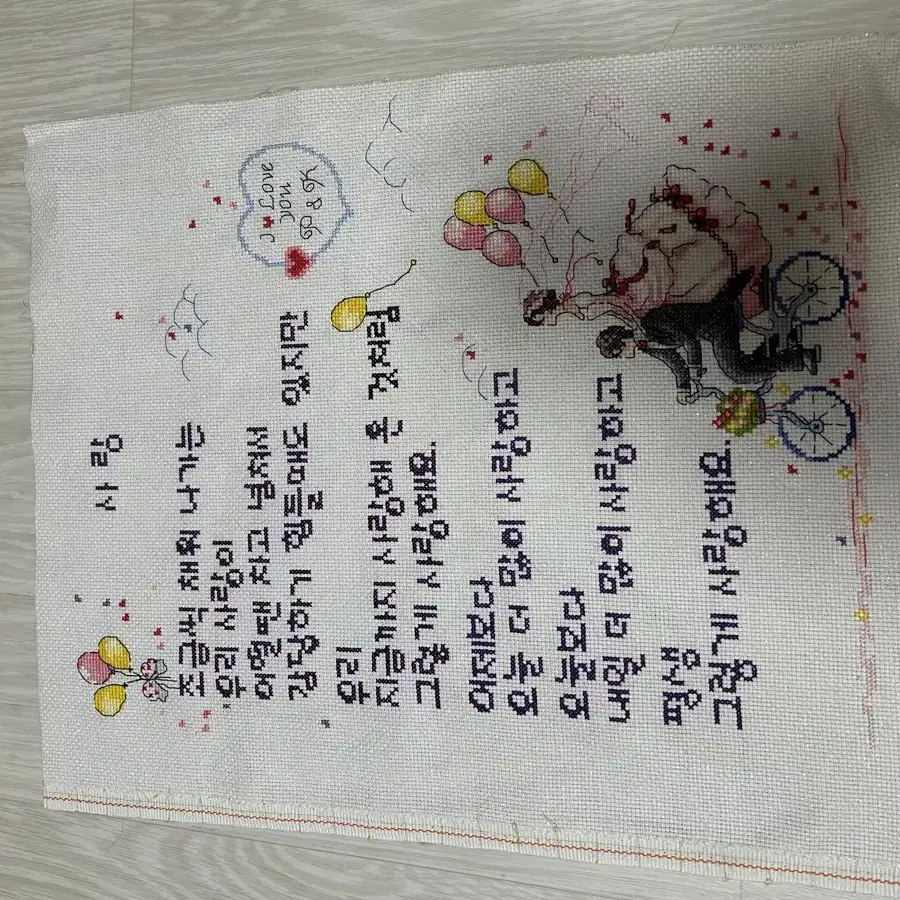 사 랑
I Love
you
조금씩 채워 나가는
우리 사랑이
어떨땐 차고 넘쳐서
감당하기 힘들때도 있지만
우리
지금까지 사랑해 온 것처럼
그렇게 사랑해요.
어제보다
오늘 더 많이 사랑하고
오늘보다
내일 더 많이 사랑하고
평생
그렇게 사랑해요.